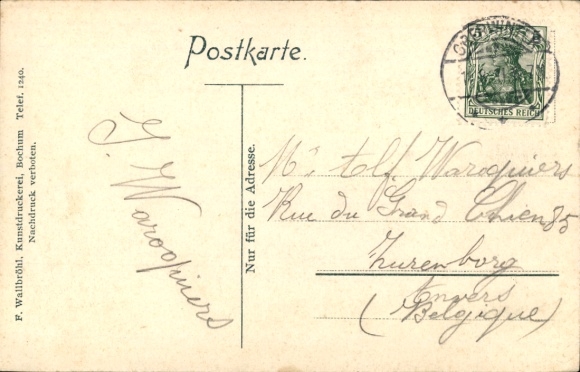 Postkarte.
DEUTSCHES REICH
F. Wallbröhl, Kunstdruckerei, Bochum Telef. 1240.
Nachdruck verboten.
J. Waroquiers
Nur für die Adresse.
Mr. Alf. Waroquiers
Rue du Grand Chien 85
Zurenborg
Anvers
(Belgique)